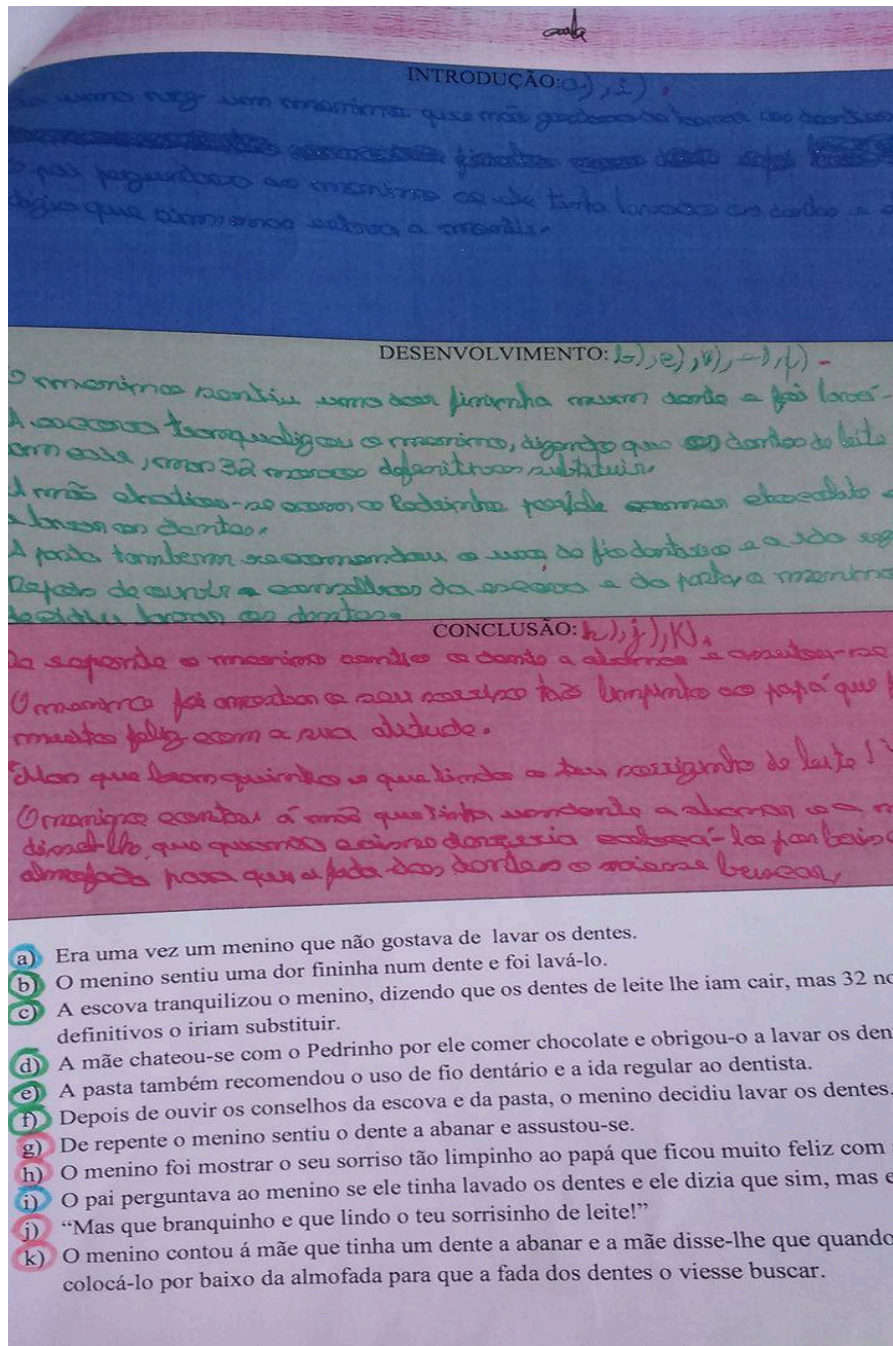 INTRODUÇÃO: a), i).
um menino que não gostava de lavar os dentes
O pai perguntava ao menino se ele tinha lavado os dentes e
dizia que sim mas estava a mentir.
DESENVOLVIMENTO: b), e),
O menino sentiu uma dor fininha num dente e foi lavá-
A escova tranquilizou o menino, dizendo que os dentes de leite
mas 32 definitivos substituir.
A mãe o Pedrinho comer chocolate
lavar os dentes.
A pasta também recomendou o uso do fio dentário e a ida
Depois de ouvir conselhos da escova e da pasta, o menino
decidiu lavar os dentes.
CONCLUSÃO: h), j), K).
De repente o menino sentiu o dente a abanar e assustou-se
O menino foi mostrar o seu sorriso tão limpinho ao papá que
muito feliz com a sua atitude.
Mas que branquinho e que lindo o teu sorrizinho de leite!
O menino contou á mãe que tinha um dente a abanar e a
disse-lhe que quando por baixo
almofada para que a fada dos dentes o viesse buscar,
a) Era uma vez um menino que não gostava de lavar os dentes.
b) O menino sentiu uma dor fininha num dente e foi lavá-lo.
c) A escova tranquilizou o menino, dizendo que os dentes de leite lhe iam cair, mas 32
definitivos o iriam substituir.
d) A mãe chateou-se com o Pedrinho por ele comer chocolate e obrigou-o a lavar os den
e) A pasta também recomendou o uso de fio dentário e a ida regular ao dentista.
f) Depois de ouvir os conselhos da escova e da pasta, o menino decidiu lavar os dentes.
g) De repente o menino sentiu o dente a abanar e assustou-se.
h) O menino foi mostrar o seu sorriso tão limpinho ao papá que ficou muito feliz com
i) O pai perguntava ao menino se ele tinha lavado os dentes e ele dizia que sim, mas e
j) “Mas que branquinho e que lindo o teu sorrisinho de leite!”
k) O menino contou á mãe que tinha um dente a abanar e a mãe disse-lhe que quando
colocá-lo por baixo da almofada para que a fada dos dentes o viesse buscar.